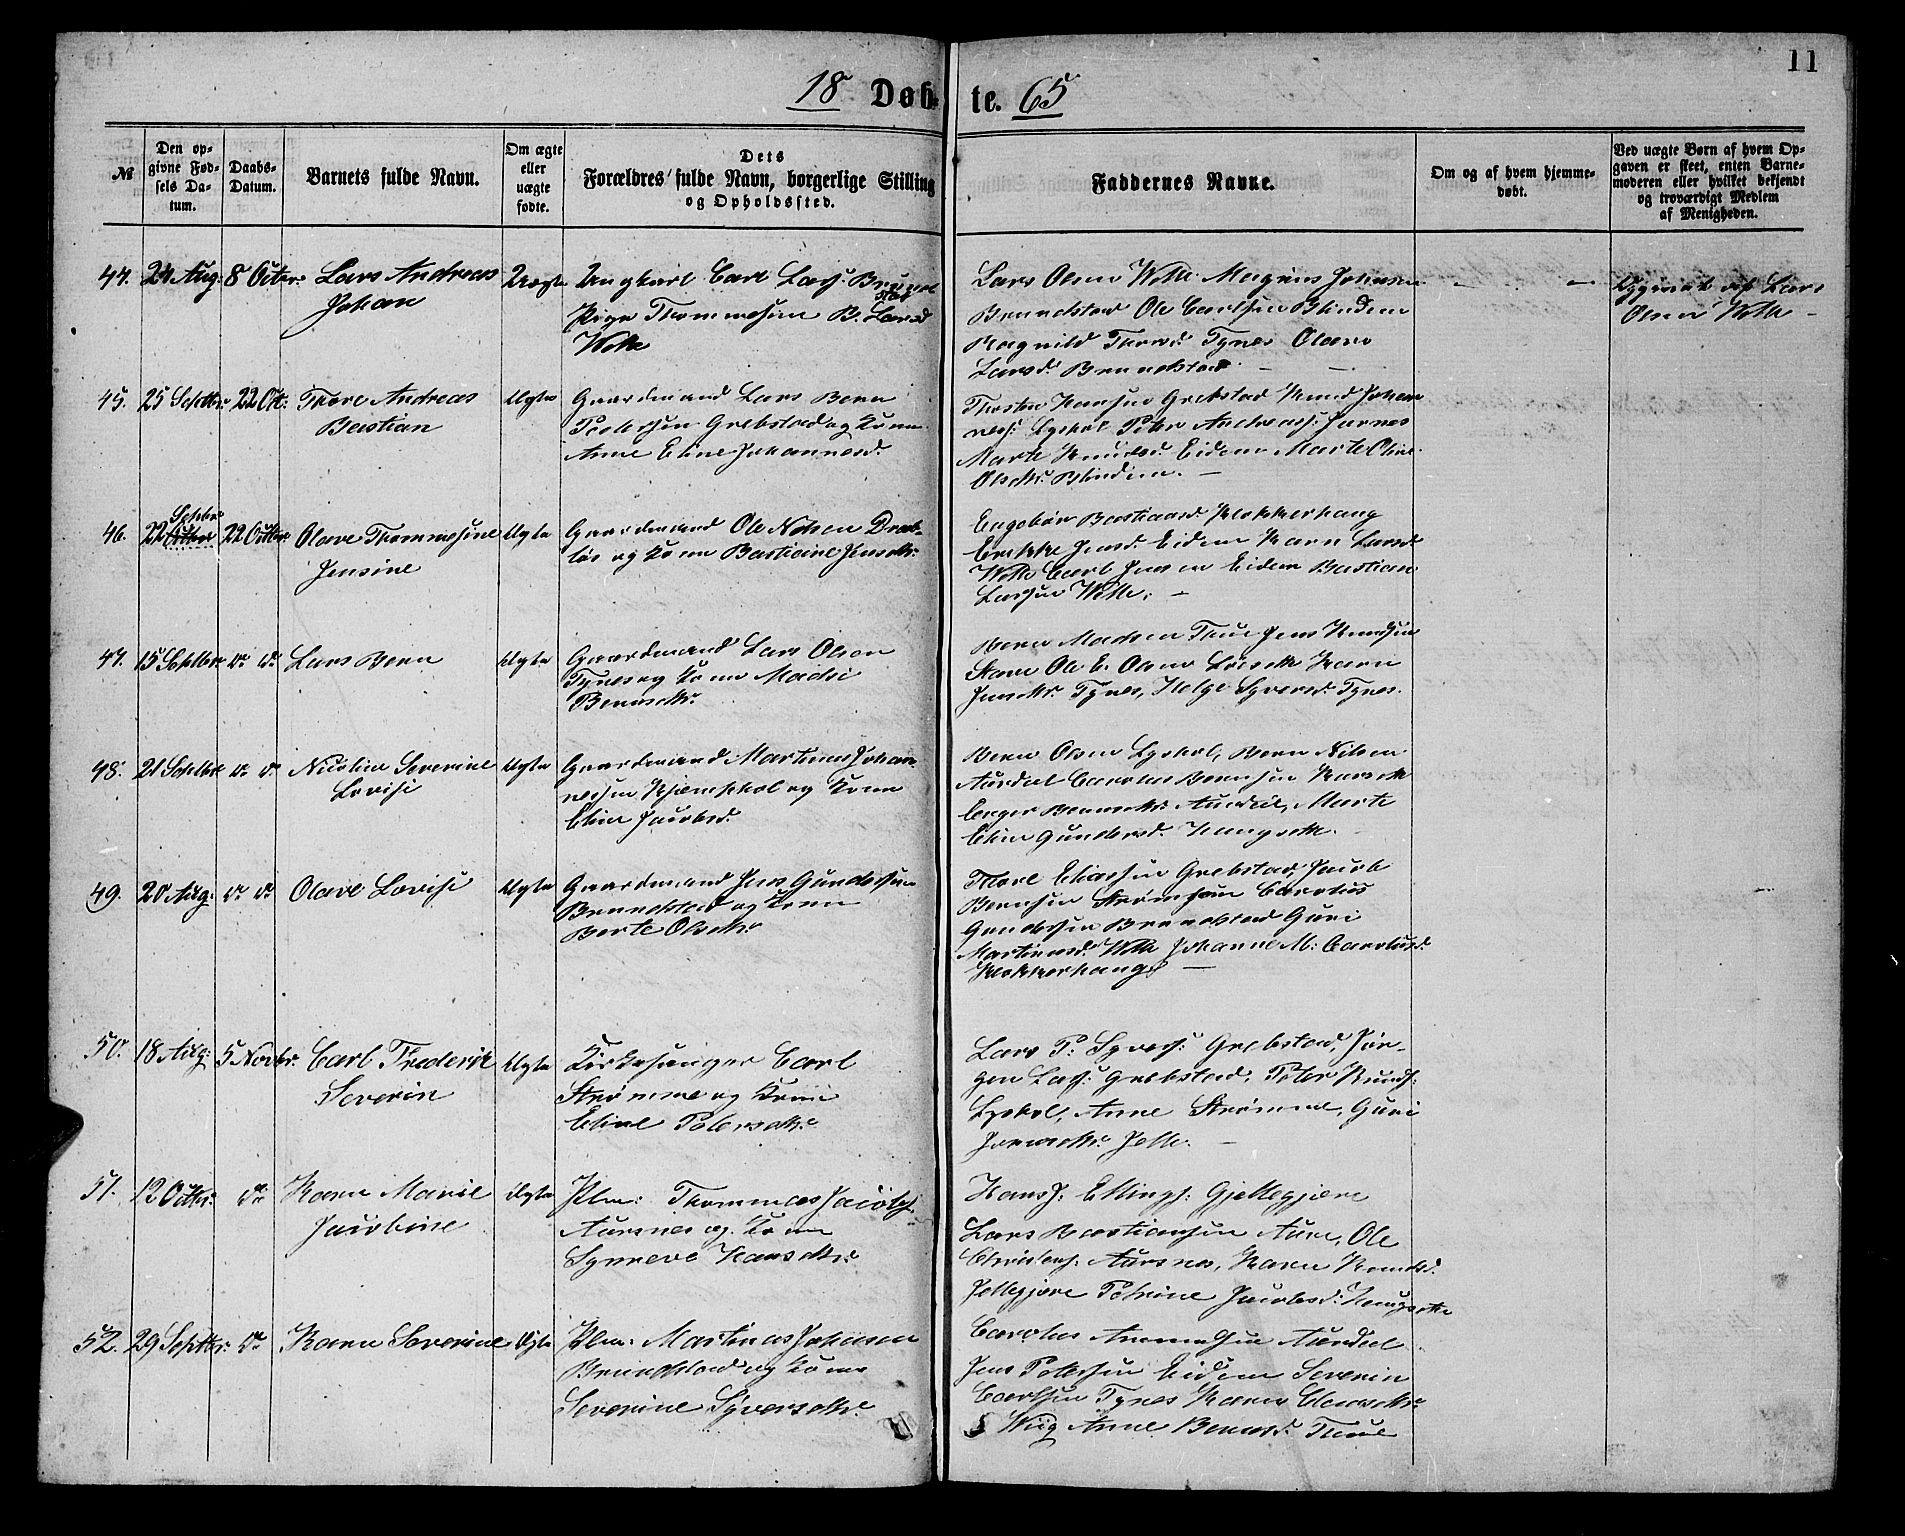 11
18 Døb- te. 65
№
Den op-
givne Fød-
sels Da-
tum.
Daabs-
Datum.
Barnets fulde Navn.
Om ægte
eller
uægte
fødte.
Dets
Forældres fulde Navn, borgerlige Stilling
og Opholdssted.
Faddernes Navne.
Om og af hvem hjemme-
døbt.
Ved uægte Børn af hvem Op-
gaven er skeet, enten Barne-
moderen eller hvilket bekjendt
og troværdigt Medlem
af Menigheden.
44. 24 Aug: 8 Octbr: Lars Andreas
Johan
Uægte
Ungkarl Carl Lars: Brund
stad
Pige Thommesine B. Larsd
Welle
Lars Olsen Welle Magnus Johnsen
Brundstad Ole Carlsen Blindem
Ragnild Thorsd. Tynes Olave
Larsd. Brundstad
Opgivet af Lars
Olsen Welle
45. 25 Septbr: 22 Oct: Thore Andreas
Bastian
Ægte
Gaardmand Lars Bern
Pedersen Grebstad og Kone
Anne Eline Johannesd.
Thosten Hansen Grebstad Knud Johan
ness: Lyshol Peter Andreass: Jarnes
Marte Knudsd. Eidem Marte Oline
Olsdtr. Blindem.
46. 22 Septbr 22 Octbr: Olave Thommesine
Jensine
Ægte
Gaardmand Ole Nelsen Drab-
løs og Kone Bastiane Jensdtr.
Engebor Bastiansd Klokkerhaug
Erikke Jensd. Eidem Karn Larsd.
Welle Carl Jensen Eidem Bastian
Larsen Welle.
47. 15 Septbr do do Lars Bern
Ægte
Gaardmand Lars Olsen
Tynes og Kone Madsi
Berndtr.
Bern Madsen Thue Jens Knudsen
Stave Ole E. Olsen Løset Karn
Jensdtr. Tynes, Helge Syversd. Tynes.
48. 21 Septbr do do Nicoline Severine
Lovise
Ægte
Gaardmand Martinus Johan-
nesen Kjemphol og Kone
Eline Jacobsd.
Bern Olsen Lyshol, Bern Nilsen
Aurdal Carolus Bernsen
Berndtr. Aurdal, Marte
Eline Gundersd.
49. 20 Aug: do do Olave Lovise
Ægte
Gaardmand Jens Gundersen
Brundstad og Kone
Berte Olsdtr.
Thore Eliassen Grebstad, Jacob
Bernsen Strømheim Carolus
Gundersen Brundstad Guri
Martinusd. Welle Johanne M. Carolusd.
Klokkerhaug
50. 18 Aug: 5 Novbr. Carl Frederik
Severin
Ægte
Kirkesanger Carl
Strømme og Kone
Eline Petersdtr.
Lars P: Syvers: Grebstad, Jør-
gen Lars: Grebstad, Peter Knuds:
Lyshol, Anne Strømme, Guri
Jonsdtr. Jelle.
51. 12 Octbr: do Karn Marie
Jacobine
Ægte
Plm: Thommas Jacobs
Aursnes og Kone
Synneve Hansdtr.
Hans J. Ellings: Gjellegjære
Lars Bastiansen Aure, Ole
Christens: Aursnes, Karn Knudsd.
Jellegjere Petrine Jacobsd.
52. 29 Septbr: do Karn Severine Ægte
Plm: Martinus Johnsen
Brundstad og Kone
Severine Syversdtr.
Carolus Ammundsen Aurdal
Jens Petersen Eidem Severin
Carlsen Tynes Karn
Wiig Anne Bernsd. Thue